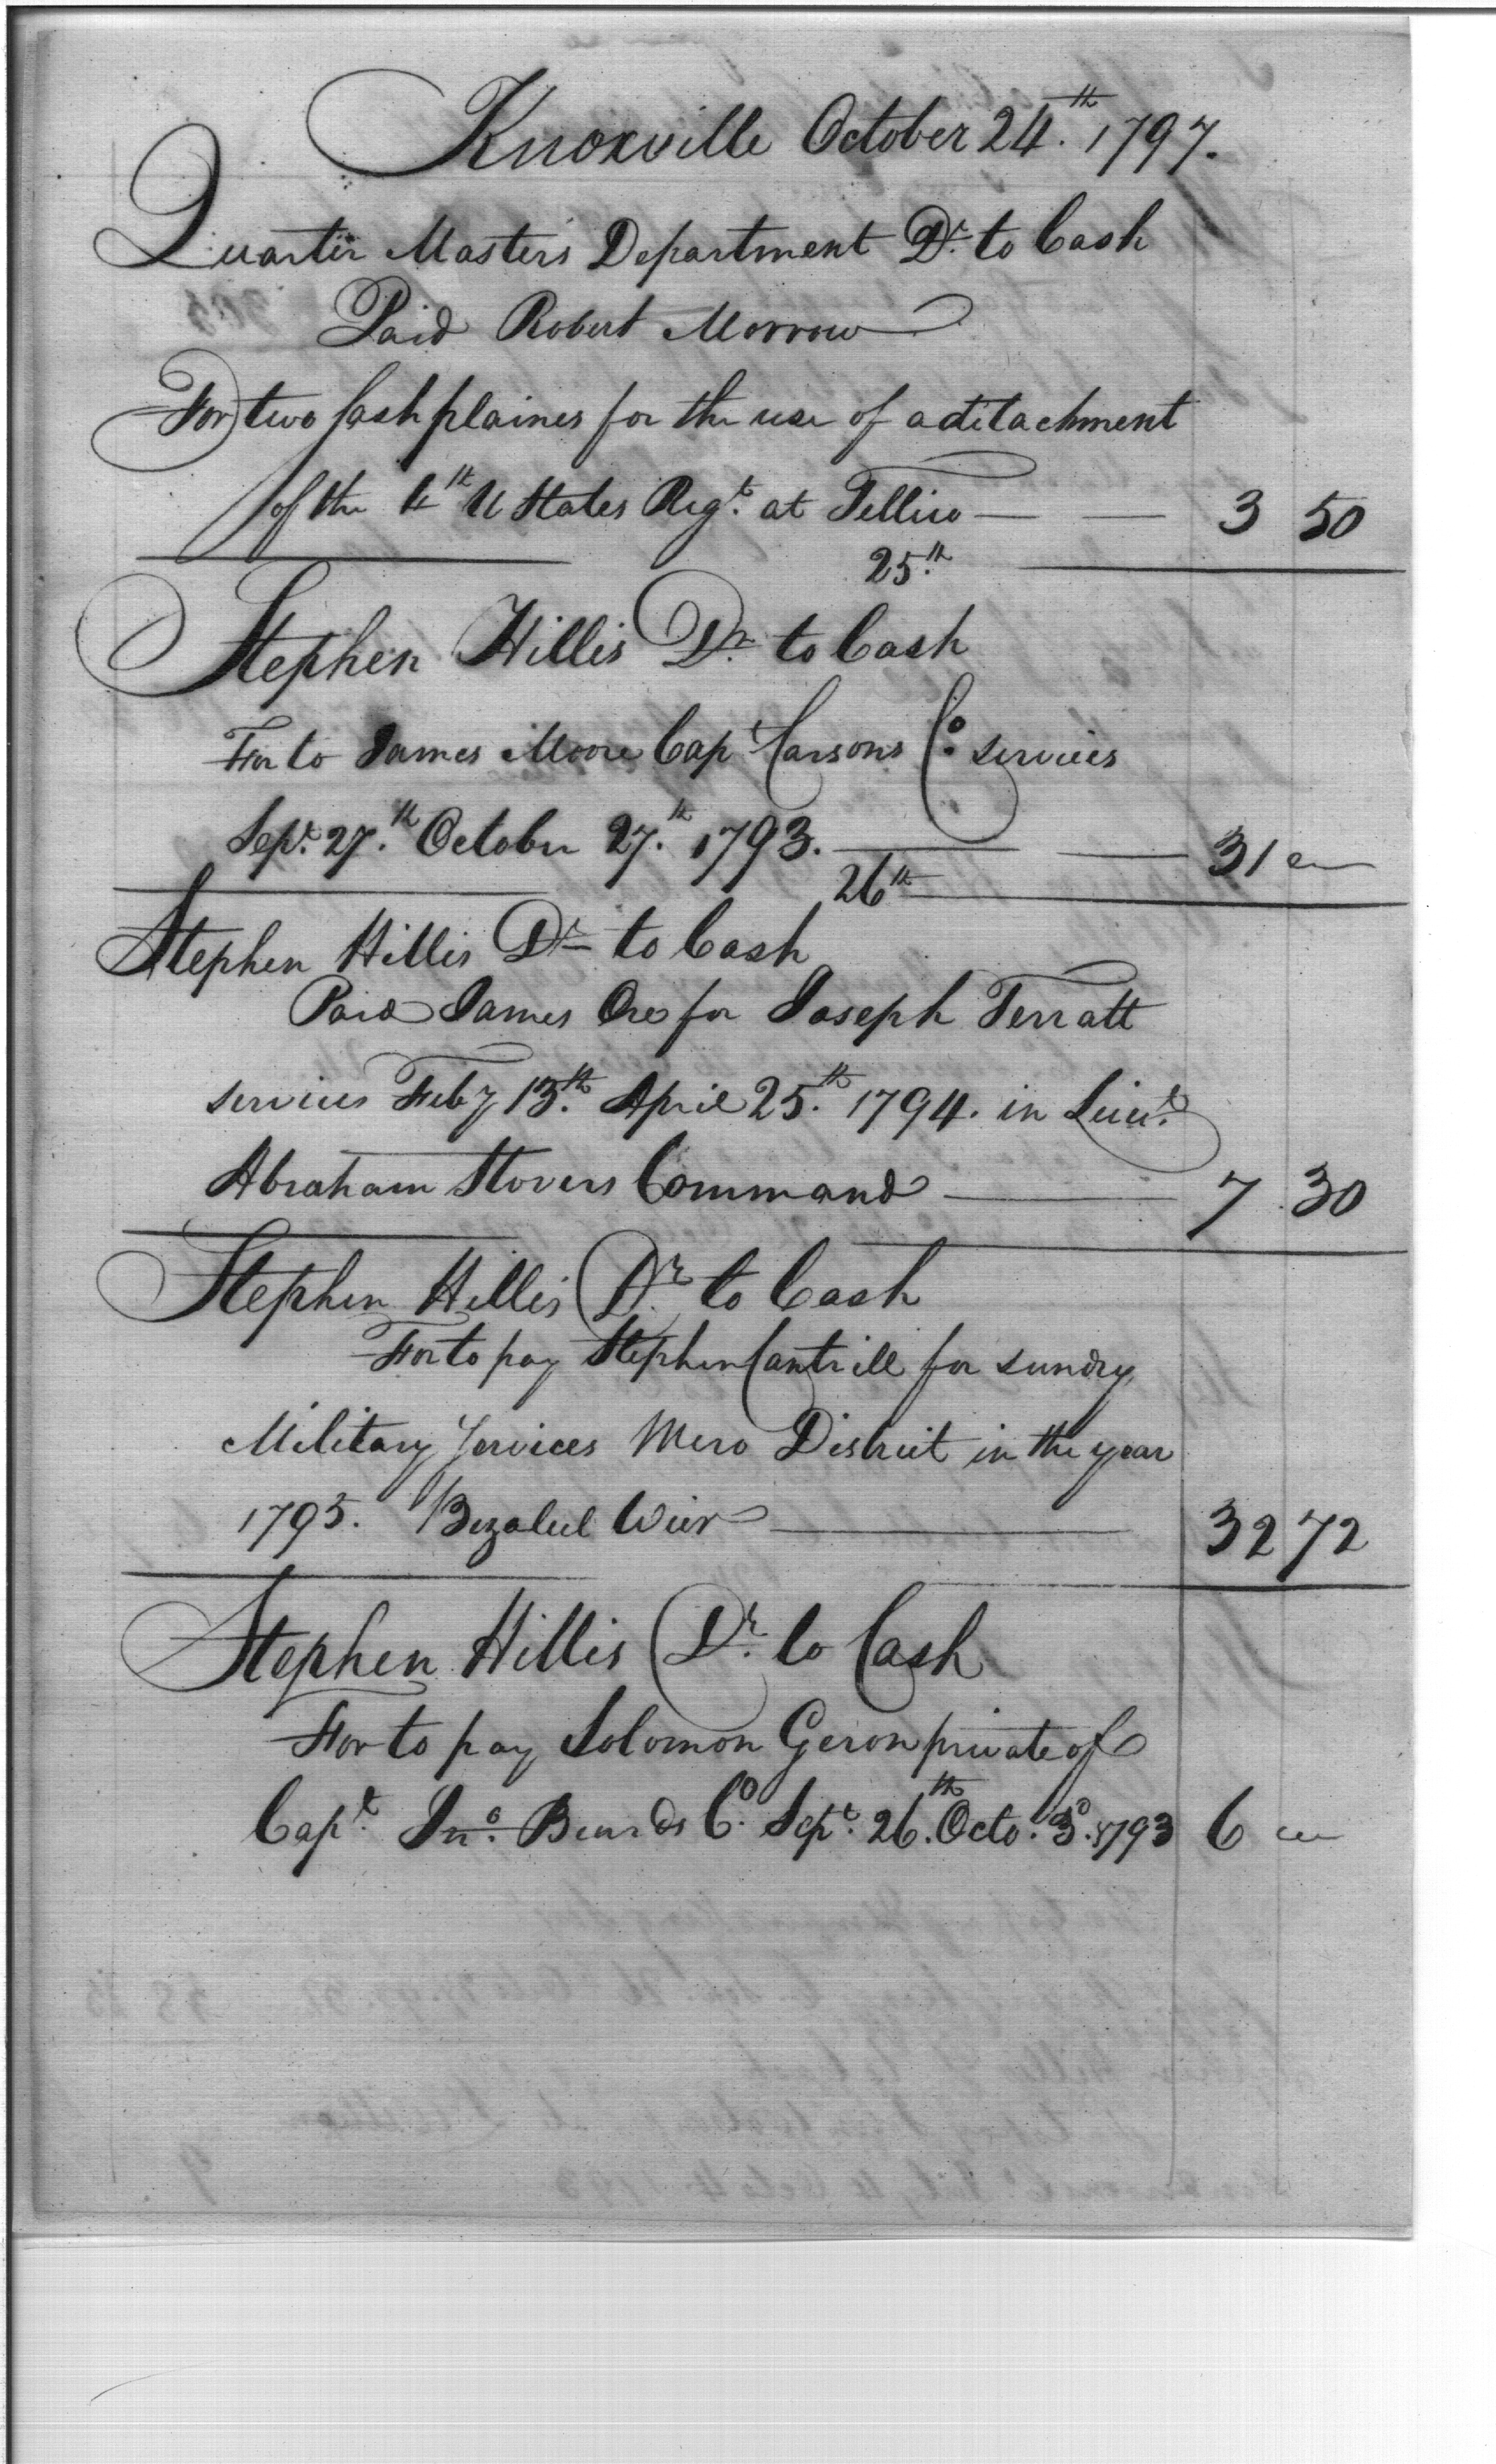 Knoxville October 24.th 1797.
Quarter Masters Department Dr. to Cash
Paid Robert Morrow
For two sash plaines for the use of a ditachment
of the 4th U States Regt. at Tellico 3 50
25.th
Stephen Hillis Dr. to Cash
For to James Moore Capt Carsons Co. services
Sept. 27.th October 27.th 1793. 31
26th
Stephen Hillis Dr to Cash
Paid James Ore for Joseph Terratt
services Feby 13.th April 25.th 1794. in Lieut.
Abraham Stovers Command 7 30
Stephen Hillis Dr. to Cash
For to pay Stephen Cantrill for sundry
Military Services Mero District in the year
1795. Bezaleel Wier 32 72
Stephen Hillis Dr. to Cash
For to pay Solomon Geron private of
Capt. Jno. Beards Co. Sept. 26.th Octo. 3d. 1793 6